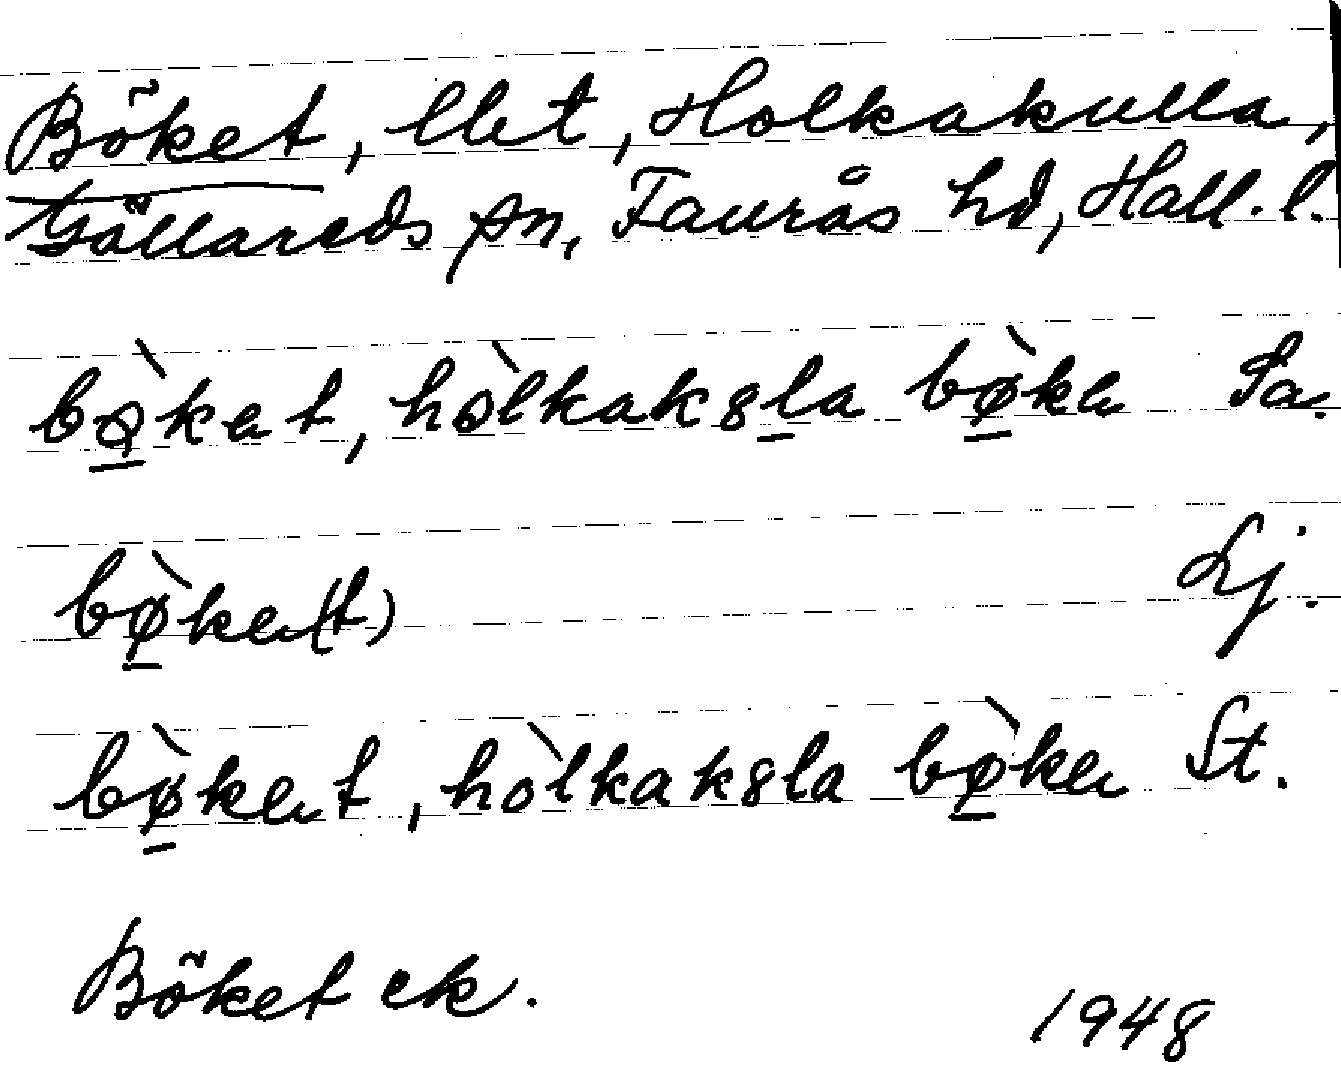 Böket, lht, Holkakulla,
Gällareds sn, Faurås hd, Hall. l.
bø̀ket, hòlkaksla bø̀ke Sa.
bø̀ke(t) Lj.
bø̀ket, hòlkaksla bø̀ke St.
Böket ek.
1948